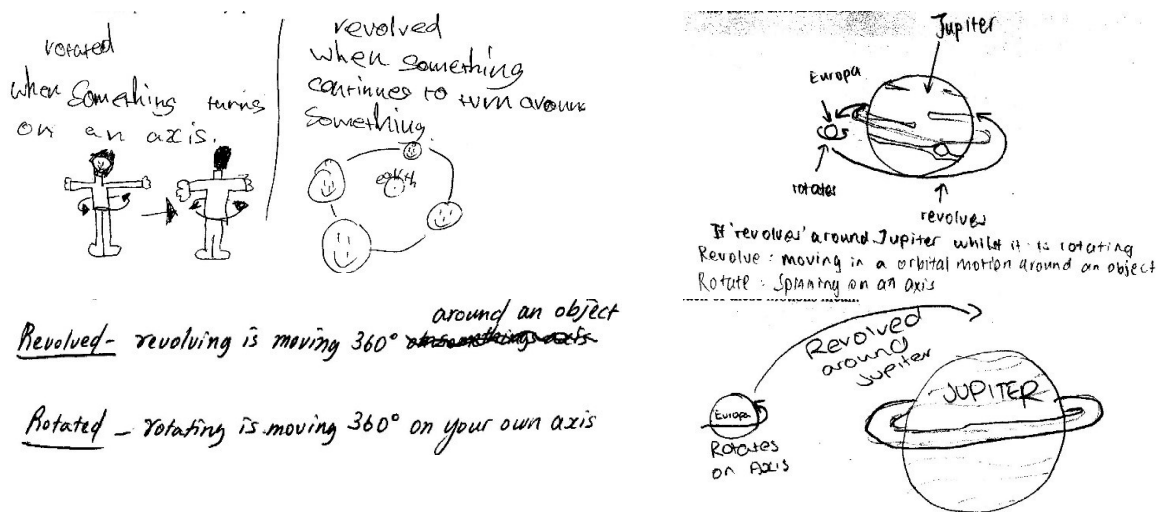 rotated
when something turns
on an axis.
revolved
when something
continues to turn around
something.
earth
around an object
Revolved- revolving is moving 360°
Rotated - rotating is moving 360° on your own axis
Jupiter
Europa
rotates
revolves
It 'revolves' around Jupiter whilst it is rotating
Revolve : moving in a orbital motion around an object
Rotate : Spinning on an axis
Revolved
around
Jupiter
JUPITER
Europa
Rotates
on Axis